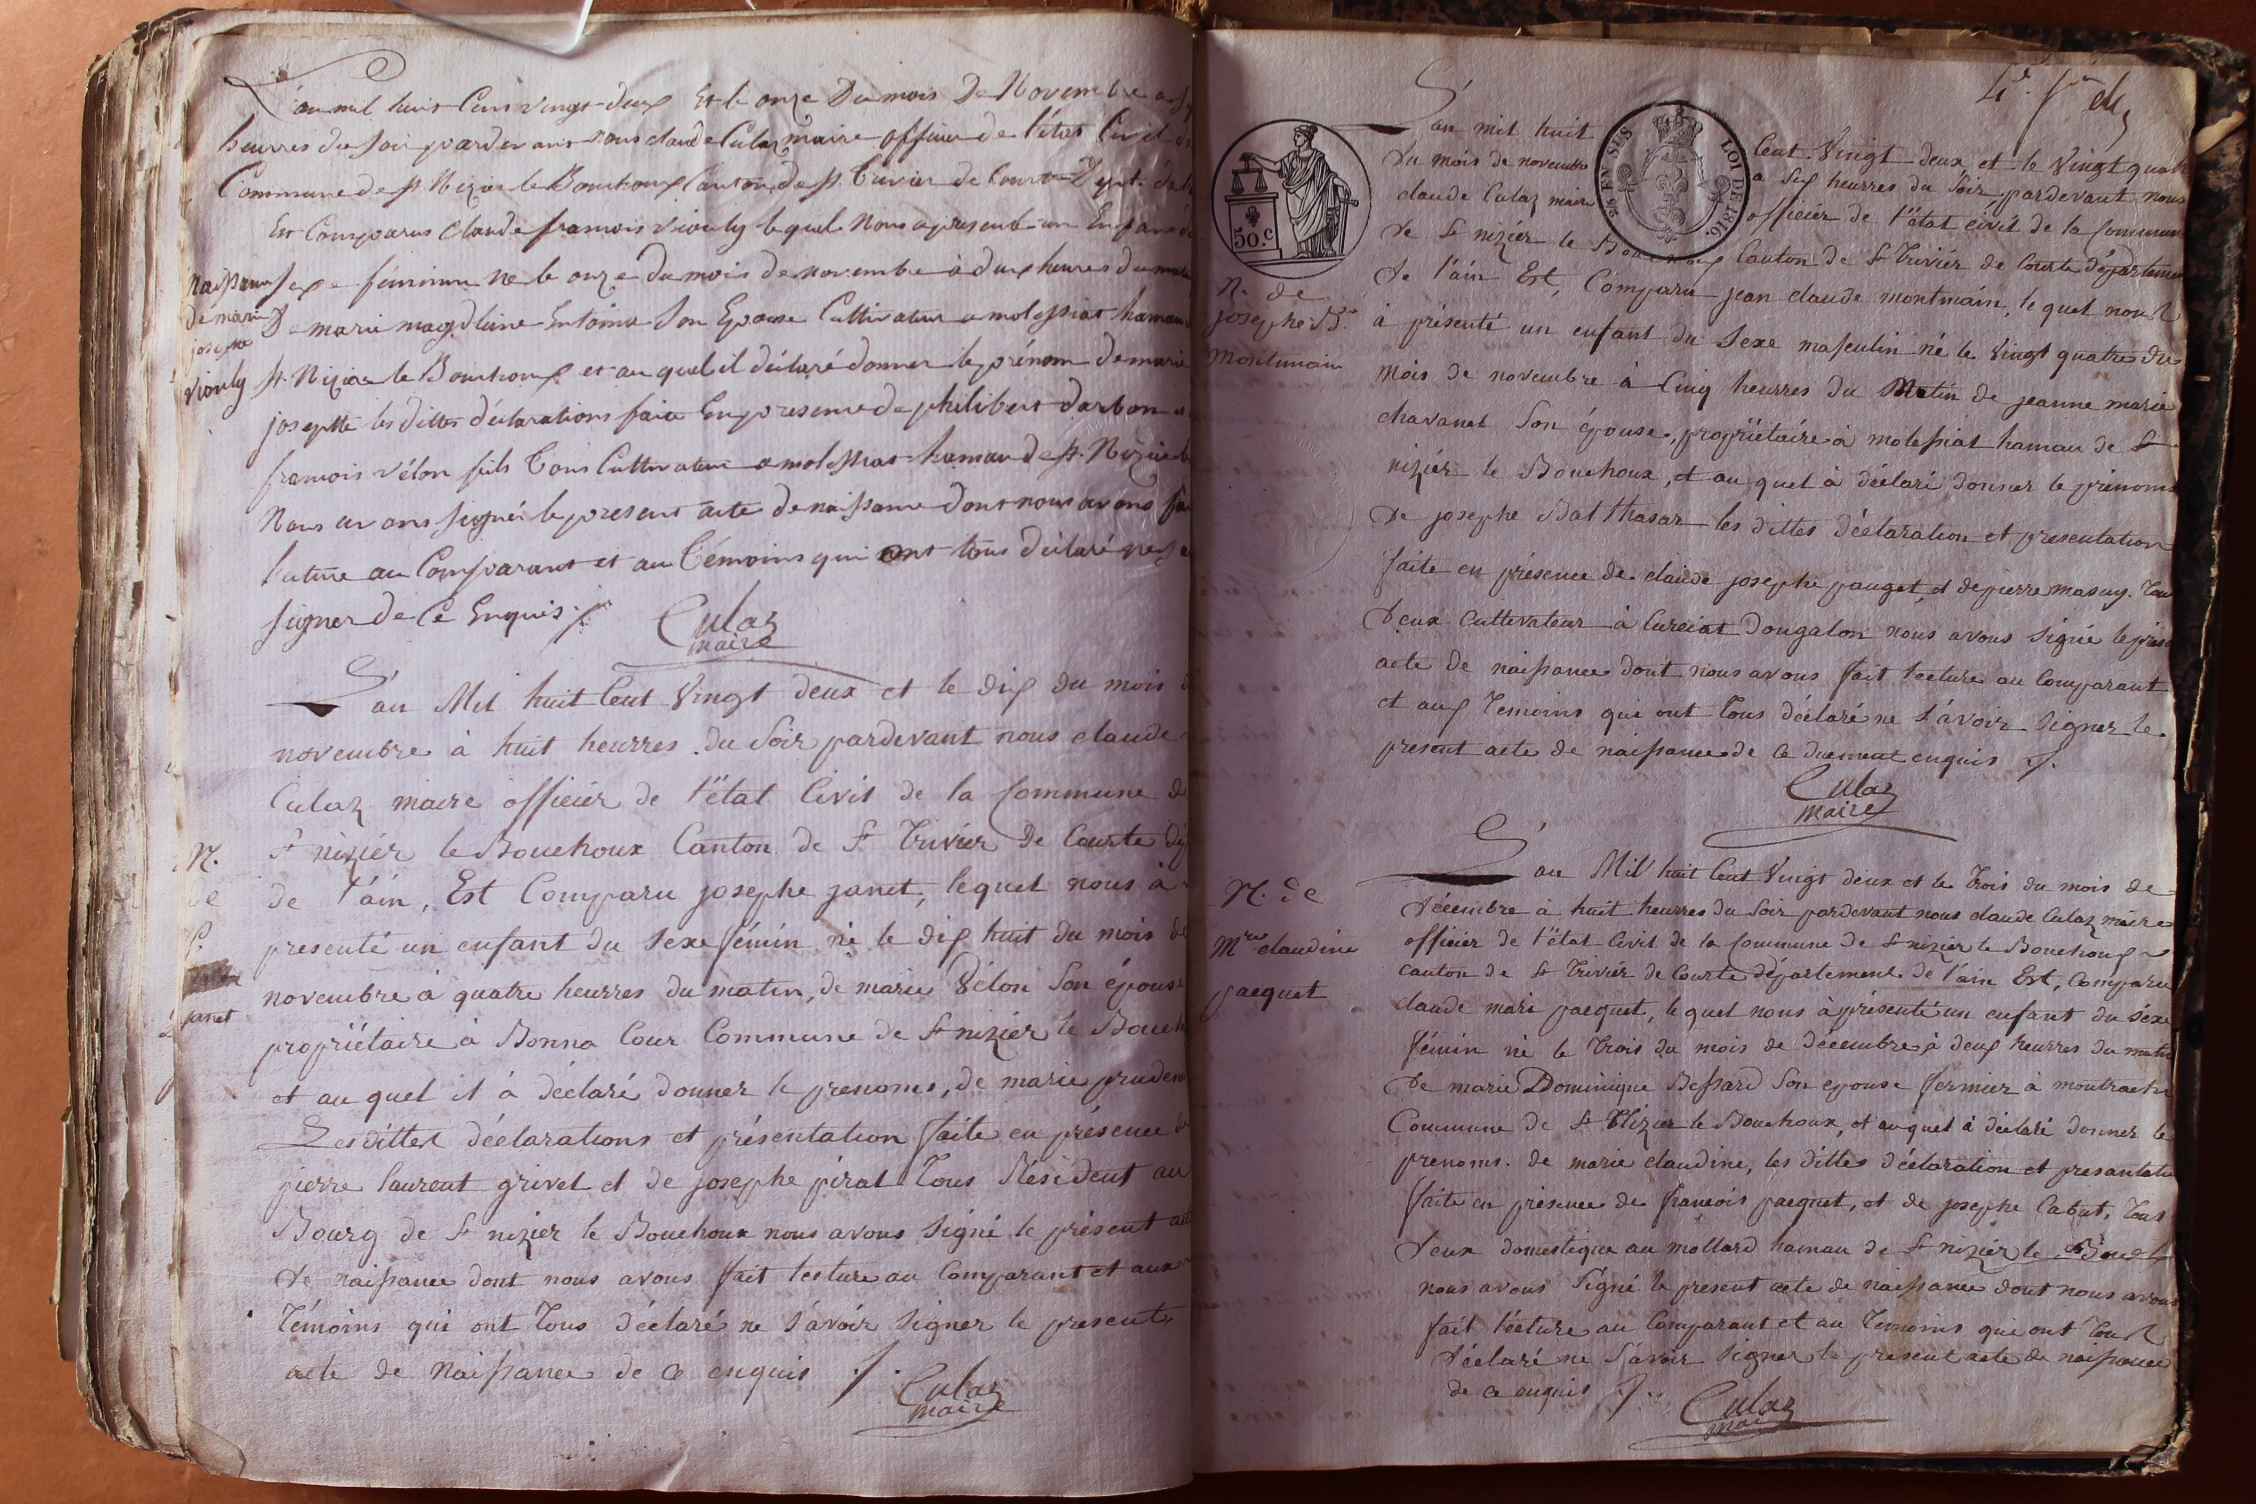 L'an mil huit Cent vingt-deux Et le onze Du mois De Novembre a
heurres du soir pardevant nous claude Culaz maire officier de l'état Civil
Commune de st. Nizier le Bouchoux Canton de st. Trivier de Courte Dept. de
Est Comparus Claude francois viouly lequel Nous a presenté un Enfant
Naissance
sexe féminin né le onze du mois de novembre à deux heures du
de marie
De marie magdelaine Son Epouse Cultivateur a molessiat hamau
josepte
viouly
st. Nizier le Bouchoux et au quel il déclaré donner le prénom de marie
josepte les dittes déclarations faite En presence de philibert darbon
francois vélon fils Tous Cultivateur a molissiat hamau de st. Nizier
Nous avons signé le present acte de naissance dont nous avons
lecture au Comparant et au Témoins qui ont tous déclaré ne
signer de Ce Enquis ./.
Culaz
maire
L'an Mil huit Cent Vingt deux et le dix du mois
novembre à huit heurres du Soir pardevant nous claude
Culaz maire officier de l'état Civil de la Commune de
N.
St nizier le Bouchoux Canton de St Trivier De Courte
de
de l'ain, Est Comparu josephe janet, lequel nous à
presenté un enfant du sexe fémin né le dix huit du mois de
novembre à quatre heurres du matin, de marie Vélon Son épouse
janet
propriétaire à Bonna Cour Commune de St nizier le
et au quel il à déclaré donner le prenoms, de marie
Les dittes déclarations et présentation faite en présence de
pierre laurent grivel et de josephe pirat Tous Résident au
Bourg de St nizier le Bouchoux nous avons Signé le présent
de naissance dont nous avons fait lecture au Comparant et aux
Témoins qui ont Tous déclaré ne Sávoir Signer le present
acte de Naissance de ce enquis ./.
Culaz
maire
50. C
25 EN SUS
LOI DE 1816.
L'an mil huit Cent Vingt deux et le Vingt quatre
du mois de novembre a Six heurres du Soir, pardevant nous
claude Culaz maire officiér de l'état civil de la Commune
de St nizier le Bouchoux Canton de St Trivier de Courte département
N. de
josephe B.
montmain
de l'ain Est, Comparu jean claude montmain, le quel nous
à présenté un enfant du Sexe masculin né le Vingt quatre du
mois de novembre à Cinq heurres du Matin de jeanne marie
chavanet Son épouse, propriétaire à molessiat hamau de St
nizier le Bouchoux, et au quel à déclaré donner le prénoms
de josephe Balthasar les dittes déclaration et presentation
faite en présence de claude josephe pauget, et de pierre masuy. Tous
deux cultivateur à Curciat Dongalon nous avons Signé le
acte de naissance dont nous avons fait lecture au Comparant
et aux Temoins qui ont Tous déclaré ne Sávoir Signer le
present acte de naissance de ce duement enquis ./.
Culaz
maire
L'an Mil huit Cent Vingt deux et le Trois du mois de
décembre à huit heurres du Soir pardevant nous claude Culaz maire
N. de
Mrie claudine
pacquet
officier de l'état Civil de la Commune de St nizier le Bouchoux
canton de St Trivier de Courte département de l'ain Est, Comparu
claude mari pacquet, le quel nous à présenté un enfant du séxe
fémin né le Trois du mois de décembre à deux heurres du matin
de marie Dominique Bessard Son epouse fermier à
Commune de St Nizier le Bouchoux, et au quel à déclaré donner le
prenoms. de marie claudine, les dittes déclaration et
faite en présence de francois pacquet, et de josephe Cabut, Tous
deux domestique au mollard hamau de St nizier le
nous avons Signé le present acte de naissance dont nous avons
fait lécture au Comparant et au Temoins qui ont Tous
déclaré ne Sávoir Signer le present acte de naissance
de ce enquis ./.
Culaz
maire